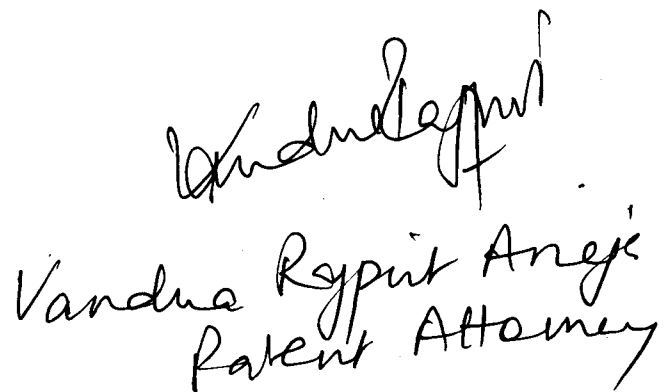 Vandna Rajput
Vandna Rajput Aneja
Patent Attorney